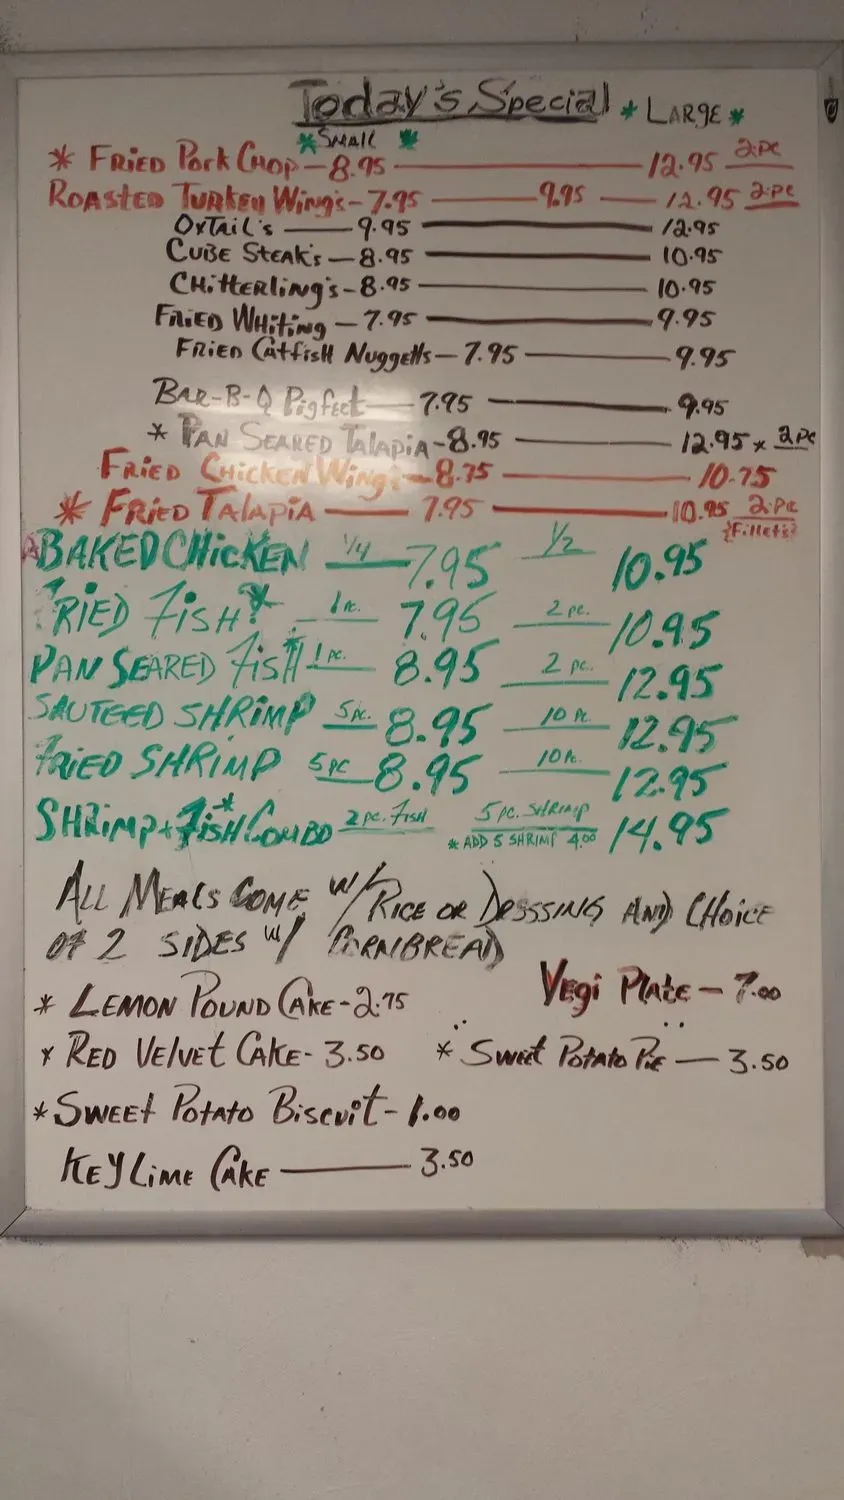 Today's Special * LARGE *
*SMALL *
* FRIED PORK CHOP - 8.95 12.95 2-PC
ROASTED TURKEY WING'S - 7.95 9.95 12.95 2-PC
OXTAIL'S 9.95 12.95
CUBE STEAK'S - 8.95 10.95
CHITTERLING'S - 8.95 10.95
FRIED WHITING - 7.95 9.95
FRIED CATFISH NUGGETTS - 7.95 9.95
BAR-B-Q Pigfeet 7.95 9.95
* PAN SEARED TALAPIA - 8.95 12.95 * 2PC
FRIED CHICKEN WING'S - 8.75 10.75
* FRIED TALAPIA 7.95 10.95 2-PC
{Fillets}
BAKED CHICKEN 1/4 7.95 1/2 10.95
FRIED FISH * 1 PC. 7.95 2 PC. 10.95
PAN SEARED FISH * 1 PC. 8.95 2 PC. 12.95
SAUTEED SHRIMP 5 PC. 8.95 10 PC. 12.95
FRIED SHRIMP 5 PC 8.95 10 PC. 12.95
SHRIMP + FISH * COMBO 2 PC. FISH 5 PC. SHRIMP 14.95
* ADD 5 SHRIMP 4.00
ALL MEALS COME W/ RICE OR DRSSSING AND CHOICE
OF 2 SIDES W/ CORNBREAD
Vegi Plate - 7.00
* LEMON POUND CAKE - 2.75
* RED VELVET CAKE - 3.50 * SWEET POTATO PIE - 3.50
* SWEET POTATO BISCUIT - 1.00
KEY LIME CAKE 3.50